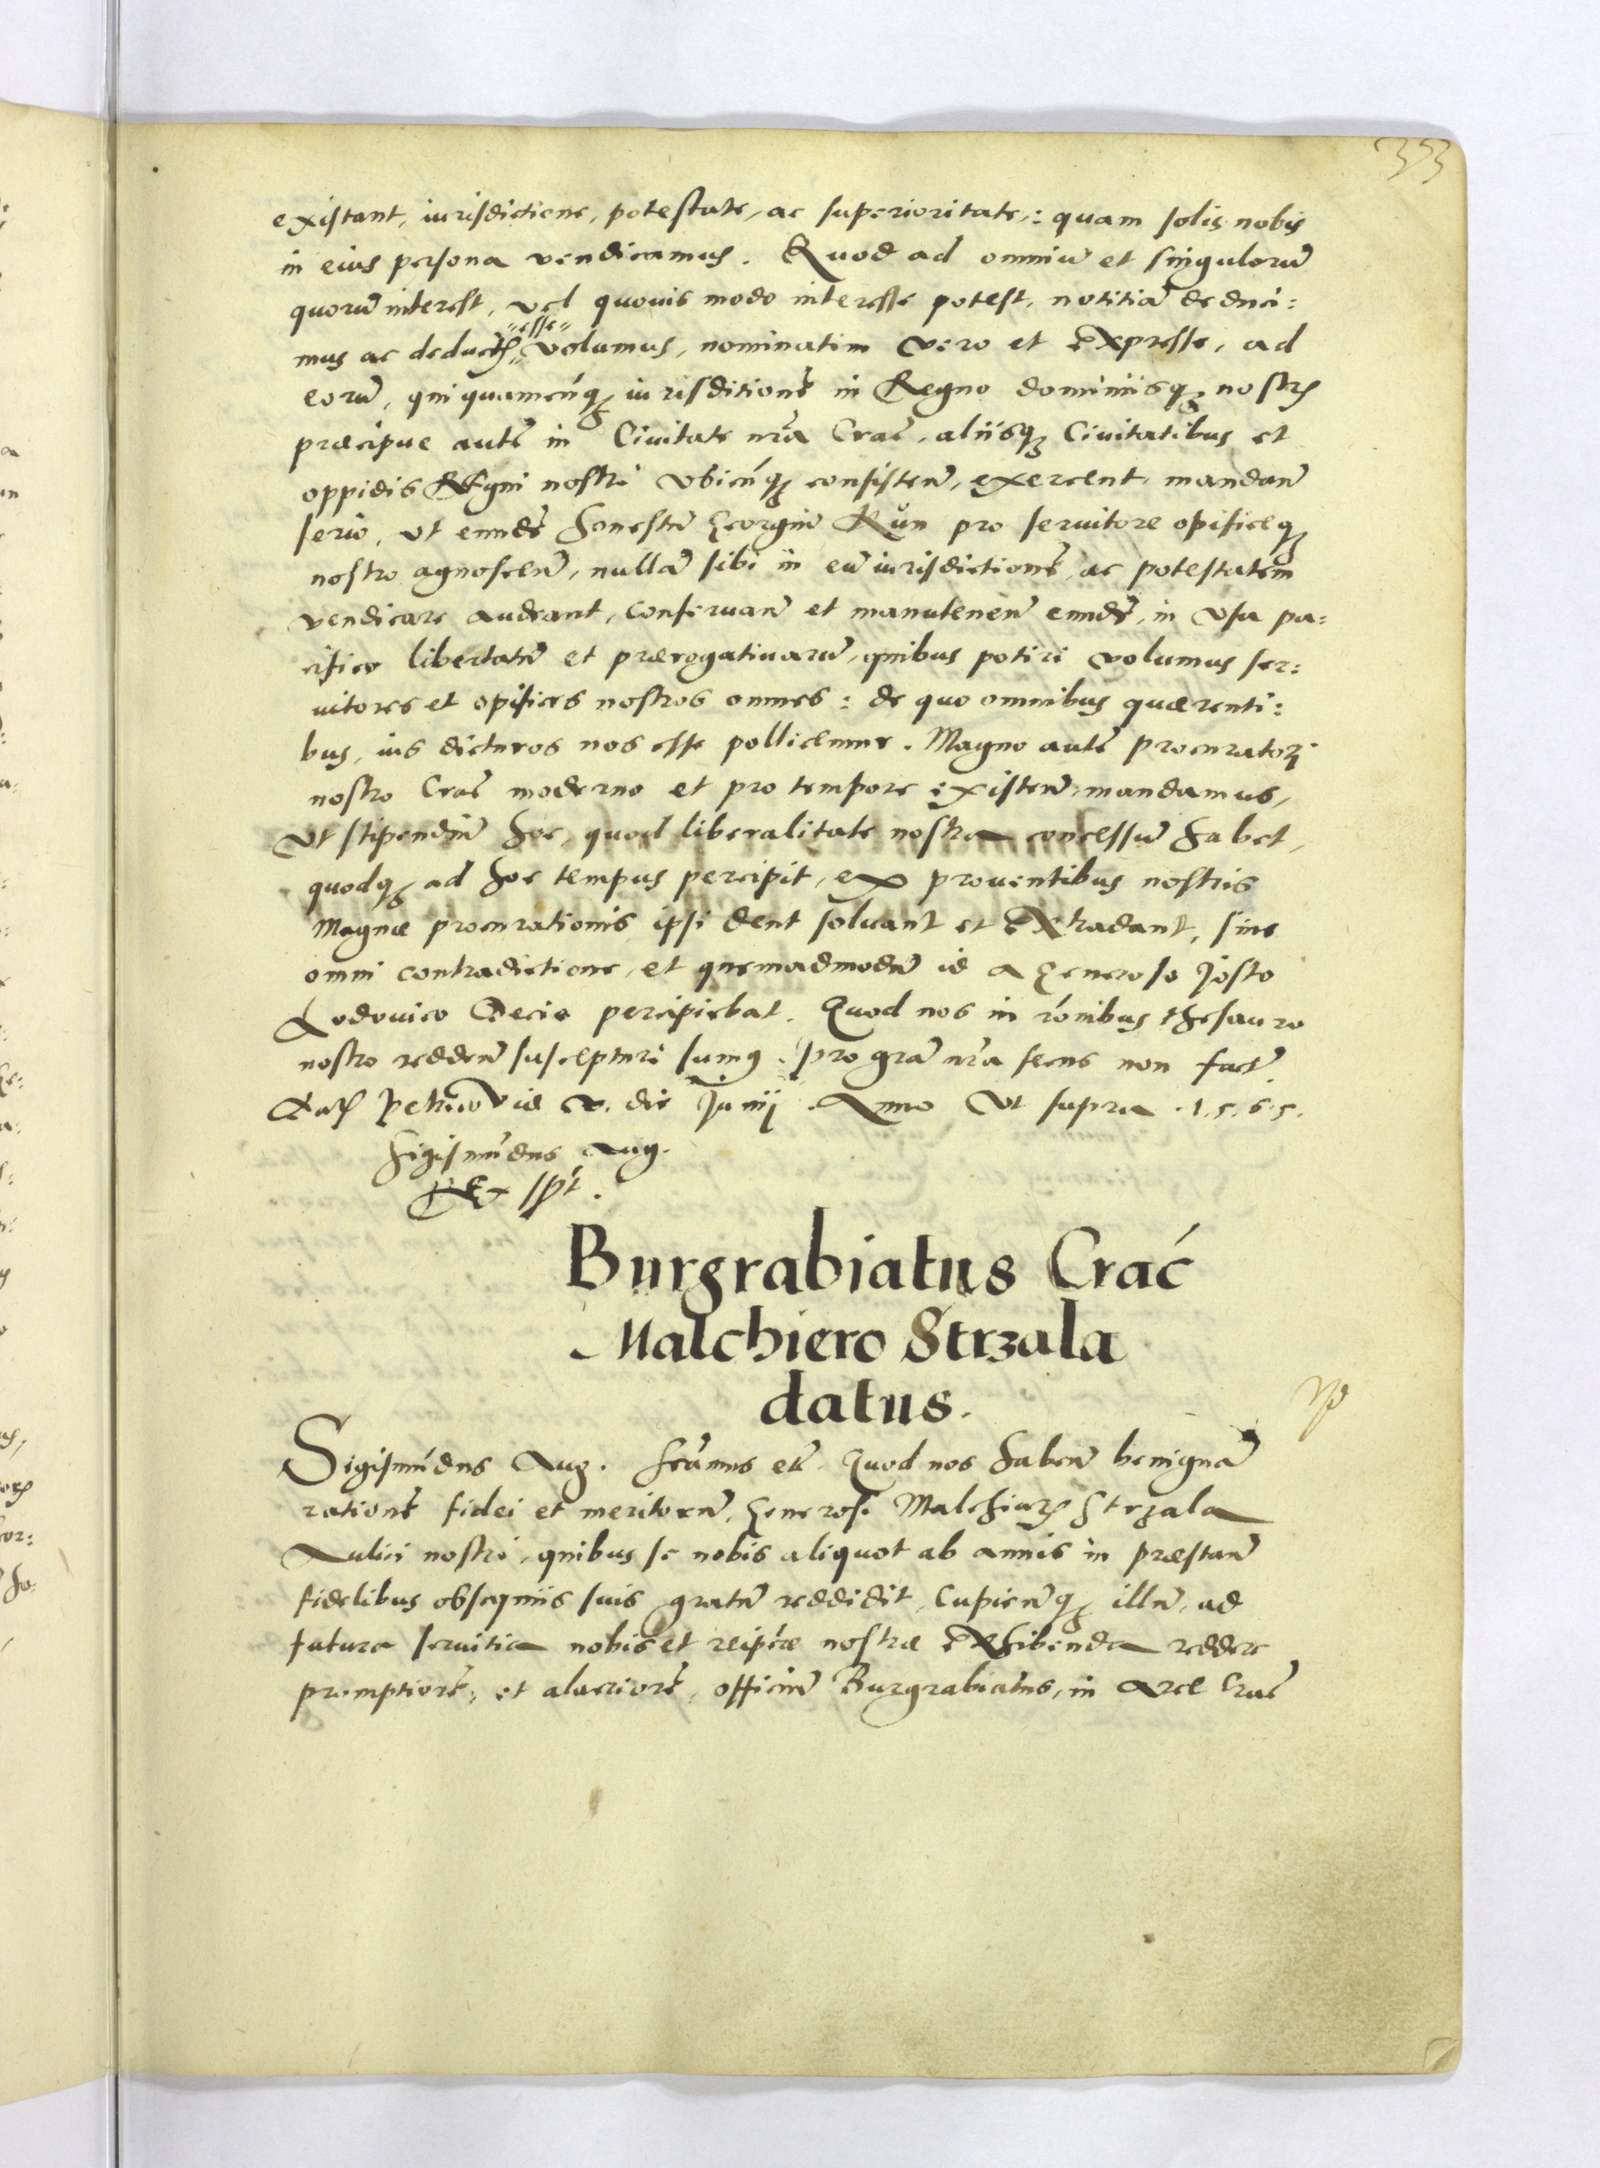 353
existant, iurisdictione, potestate, ac superioritate,: quam solis nobis
in eius persona vendicamus. Quod ad omniũ et singulorũ
quorũ interest, vel quouis modo interesse potest, notitiã deduci:
esse
mus ac deduct̃ volumus, nominatim vero et expresse, ad
eorũ, qui quamcũq₃ iurisditionẽ in Regno dominiisq₃ nostr̃
præcipue autẽ in Ciuitate nr̃a Crac̃, aliisq₃ Ciuitatibus et
oppidis Regni nostri vbicũq₃ consisteñ, exercent, mandañ
serio, vt eundẽ honestũ Georgiũ Kŭn pro seruitore opificeq₃
nostro agnosceñ, nullã sibi in eũ iurisdictionẽ, ac potestatem
vendicare audeant, conseruañ et manuteneñ eundẽ, in vsu pa:
cifico libertatũ et prærogatiuarũ, quibus potiri volumus ser:
uitores et opifices nostros omnes: de quo omnibus quærenti:
bus, ius dicturos nos esse pollicemur. Magno autẽ procuratori
nostro Crac̃ moderno et pro tempore existeñ mandamus,
vt stipendiũ hoc, quod liberalitate nostra concessum habet,
quodq₃ ad hoc tempus percipit, ex prouentibus nostris
Magnæ procurationis ipsi dent soluant et extradant, sine
omni contradictione, et quemadmodũ id a Generoso Josto
Lodouico Decio percipiebat. Quod nos in rõnibus thesauro
nostro reddeñ suscepturi sumq. pro grã nr̃a secus non factũ.
Dat̃ Petricouiæ v. die Junij. Anno vt supra .1.5.6.5.
Sigismũdus Aug.
Rex sp̃t.
Burgrabiatus Crać
Malchiero Strzala
datus.
Sigismũdus Aug. sc̃amus et̃. Quod nos habeñ benignã
rationẽ fidei et meritorũ, Generosi Malchiar̃ Strzala
Aulici nostri, quibus se nobis aliquot ab annis in præstañ
fidelibus obsequiis suis gratũ reddidit, Cupieñq₃ illũ, ad
futura seruitia nobis et reip̃cæ nostræ exhibenda reddere
promptiorẽ, et alacriorẽ, officiũ Burgrabiatus, in arce Crac̃